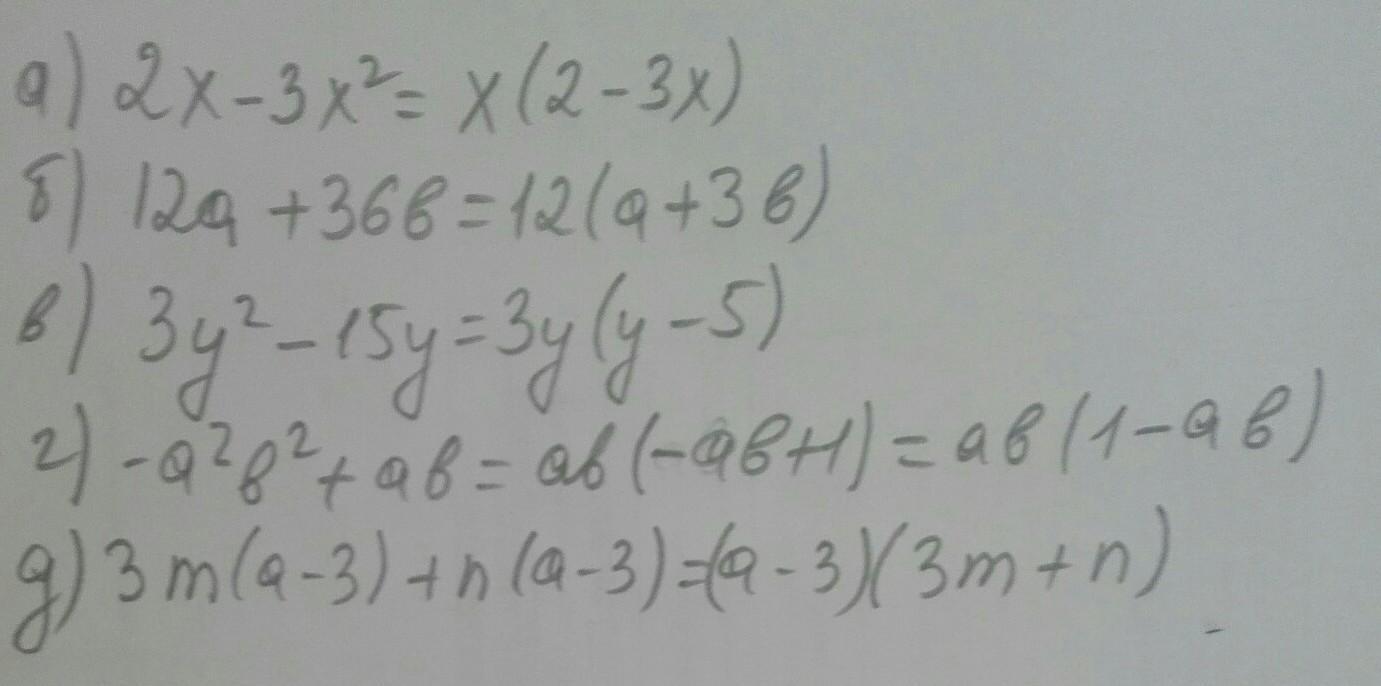 а) 2x-3x²= x(2-3x)
б) 12a+36в=12(a+3в)
в) 3y²-15y=3y(y-5)
г) -a²в²+aв= aв(-aв+1)= aв(1-aв)
д) 3m(a-3)+n(a-3)=(a-3)(3m+n)